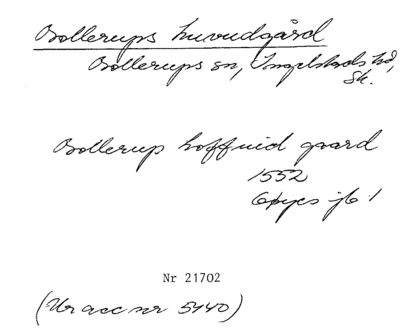 Bollerups huvudgård
Bollerups sn, Ingelstads hd,
Sk.
Bollerup hoffuid gaard
1552
jb 1
Nr 21702
(Ur acc nr 5140)